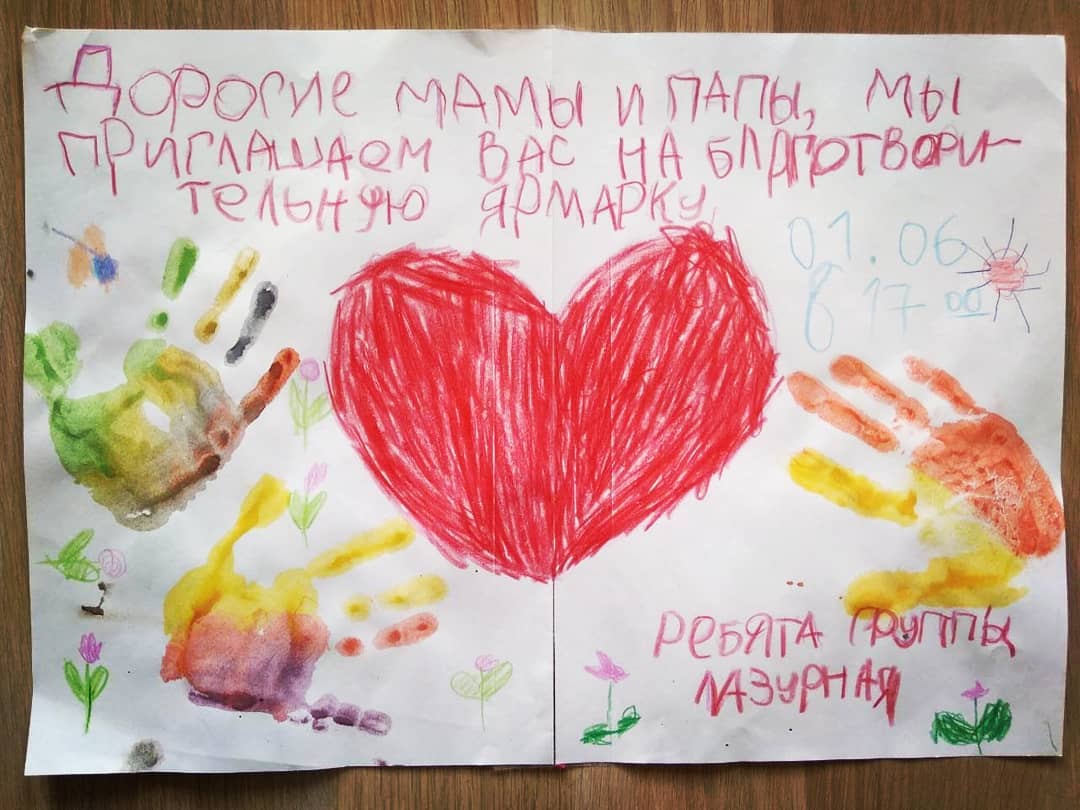 Дорогие мамы и папы, мы
приглашаем вас на благотвори-
тельную ярмарку
01.06
в 17 00
Ребята группы
Лазурная